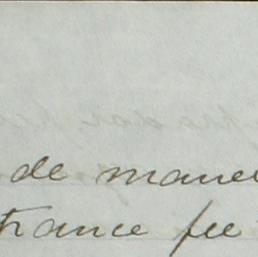 de maner
trance fee